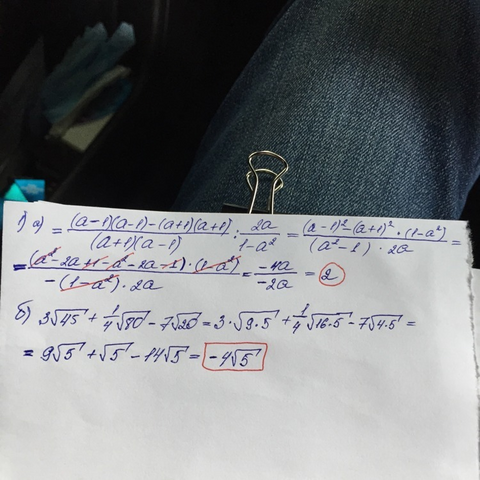 1) а) = ((a-1)(a-1)-(a+1)(a+1))/((a+1)(a-1)) : 2a/(1-a²) = ((a-1)²-(a+1)²·(1-a²))/((a²-1)·2a) =
= ((a²-2a+1-a²-2a-1)·(1-a²))/(-(1-a²)·2a) = -4a/-2a = 2
б) 3√45 + 1/4√80 - 7√20 = 3·√9·5 + 1/4√16·5 - 7√4·5 =
= 9√5 + √5 - 14√5 = -4√5